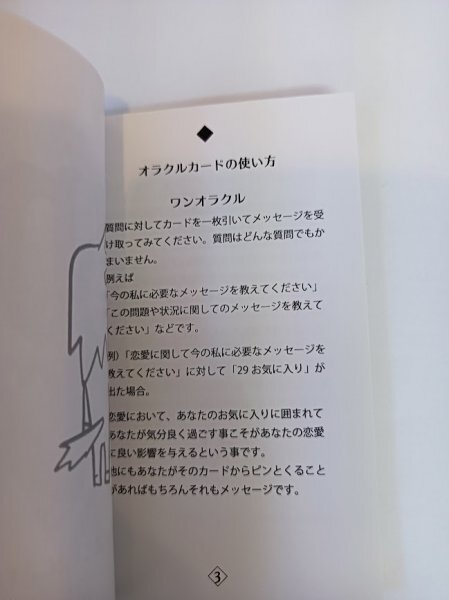 オラクルカードの使い方
ワンオラクル
質問に対してカードを一枚引いてメッセージを受
け取ってみてください。質問はどんな質問でもか
まいません。
例えば
「今の私に必要なメッセージを教えてください」
「この問題や状況に関してのメッセージを教えて
ください」などです。
例）「恋愛に関して今の私に必要なメッセージを
教えてください」に対して「29 お気に入り」が
出た場合。
恋愛において、あなたのお気に入りに囲まれて
あなたが気分良く過ごす事こそがあなたの恋愛
に良い影響を与えるという事です。
他にもあなたがそのカードからピンとくること
があればもちろんそれもメッセージです。
3